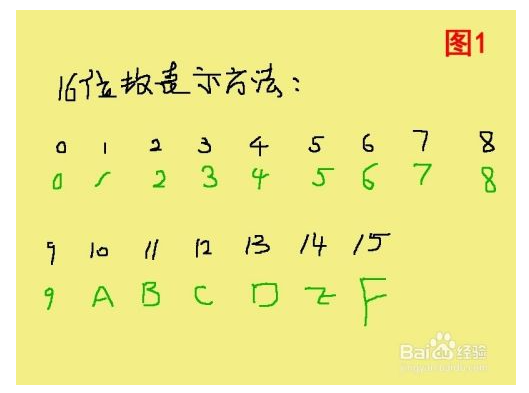 图1
16位数表示方法：
0 1 2 3 4 5 6 7 8
0 1 2 3 4 5 6 7 8
9 10 11 12 13 14 15
9 A B C D E F
Baidu 经验
jingyan.baidu.com